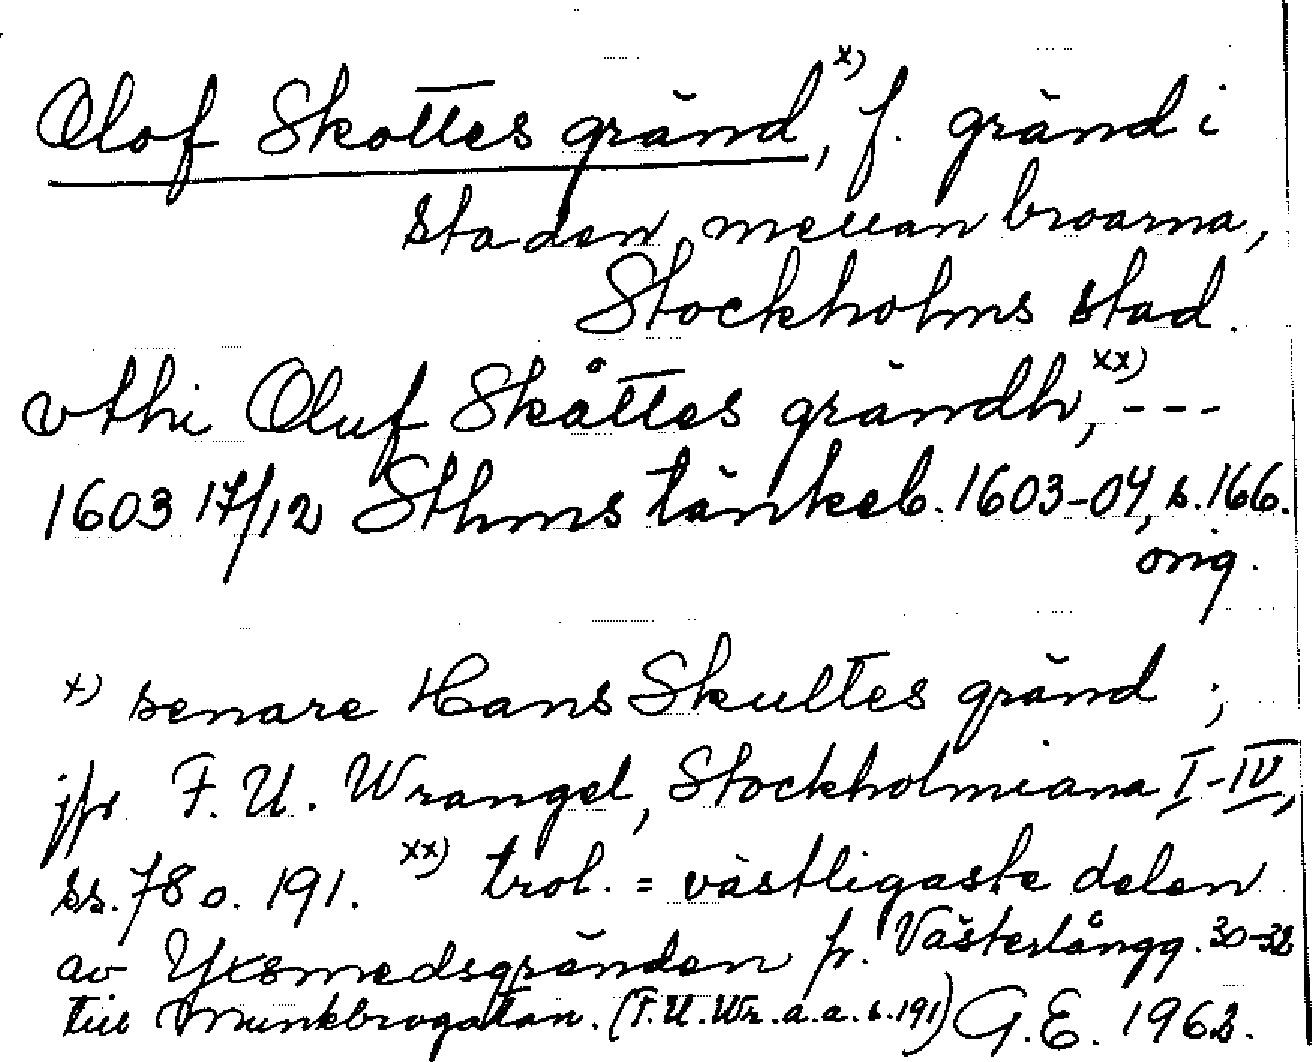 Olof Skottes gränd,x) f. gränd i
staden mellan broarna,
Stockholms stad.
vthi Oluf Skåttes grändh,xx) ---
1603 17/12 Sthms tänkeb. 1603-04, s. 166.
orig.
x) senare Hans Skultes gränd ;
jfr F. U. Wrangel, Stockholmiana I-IV,
ss. 78 o. 191. xx) trol. = västligaste delen
av Yxsmedsgränden fr. Västerlångg. 30-32
till Munkbrogatan. (F.U.Wr. a.a. s. 191) G.E. 1962.